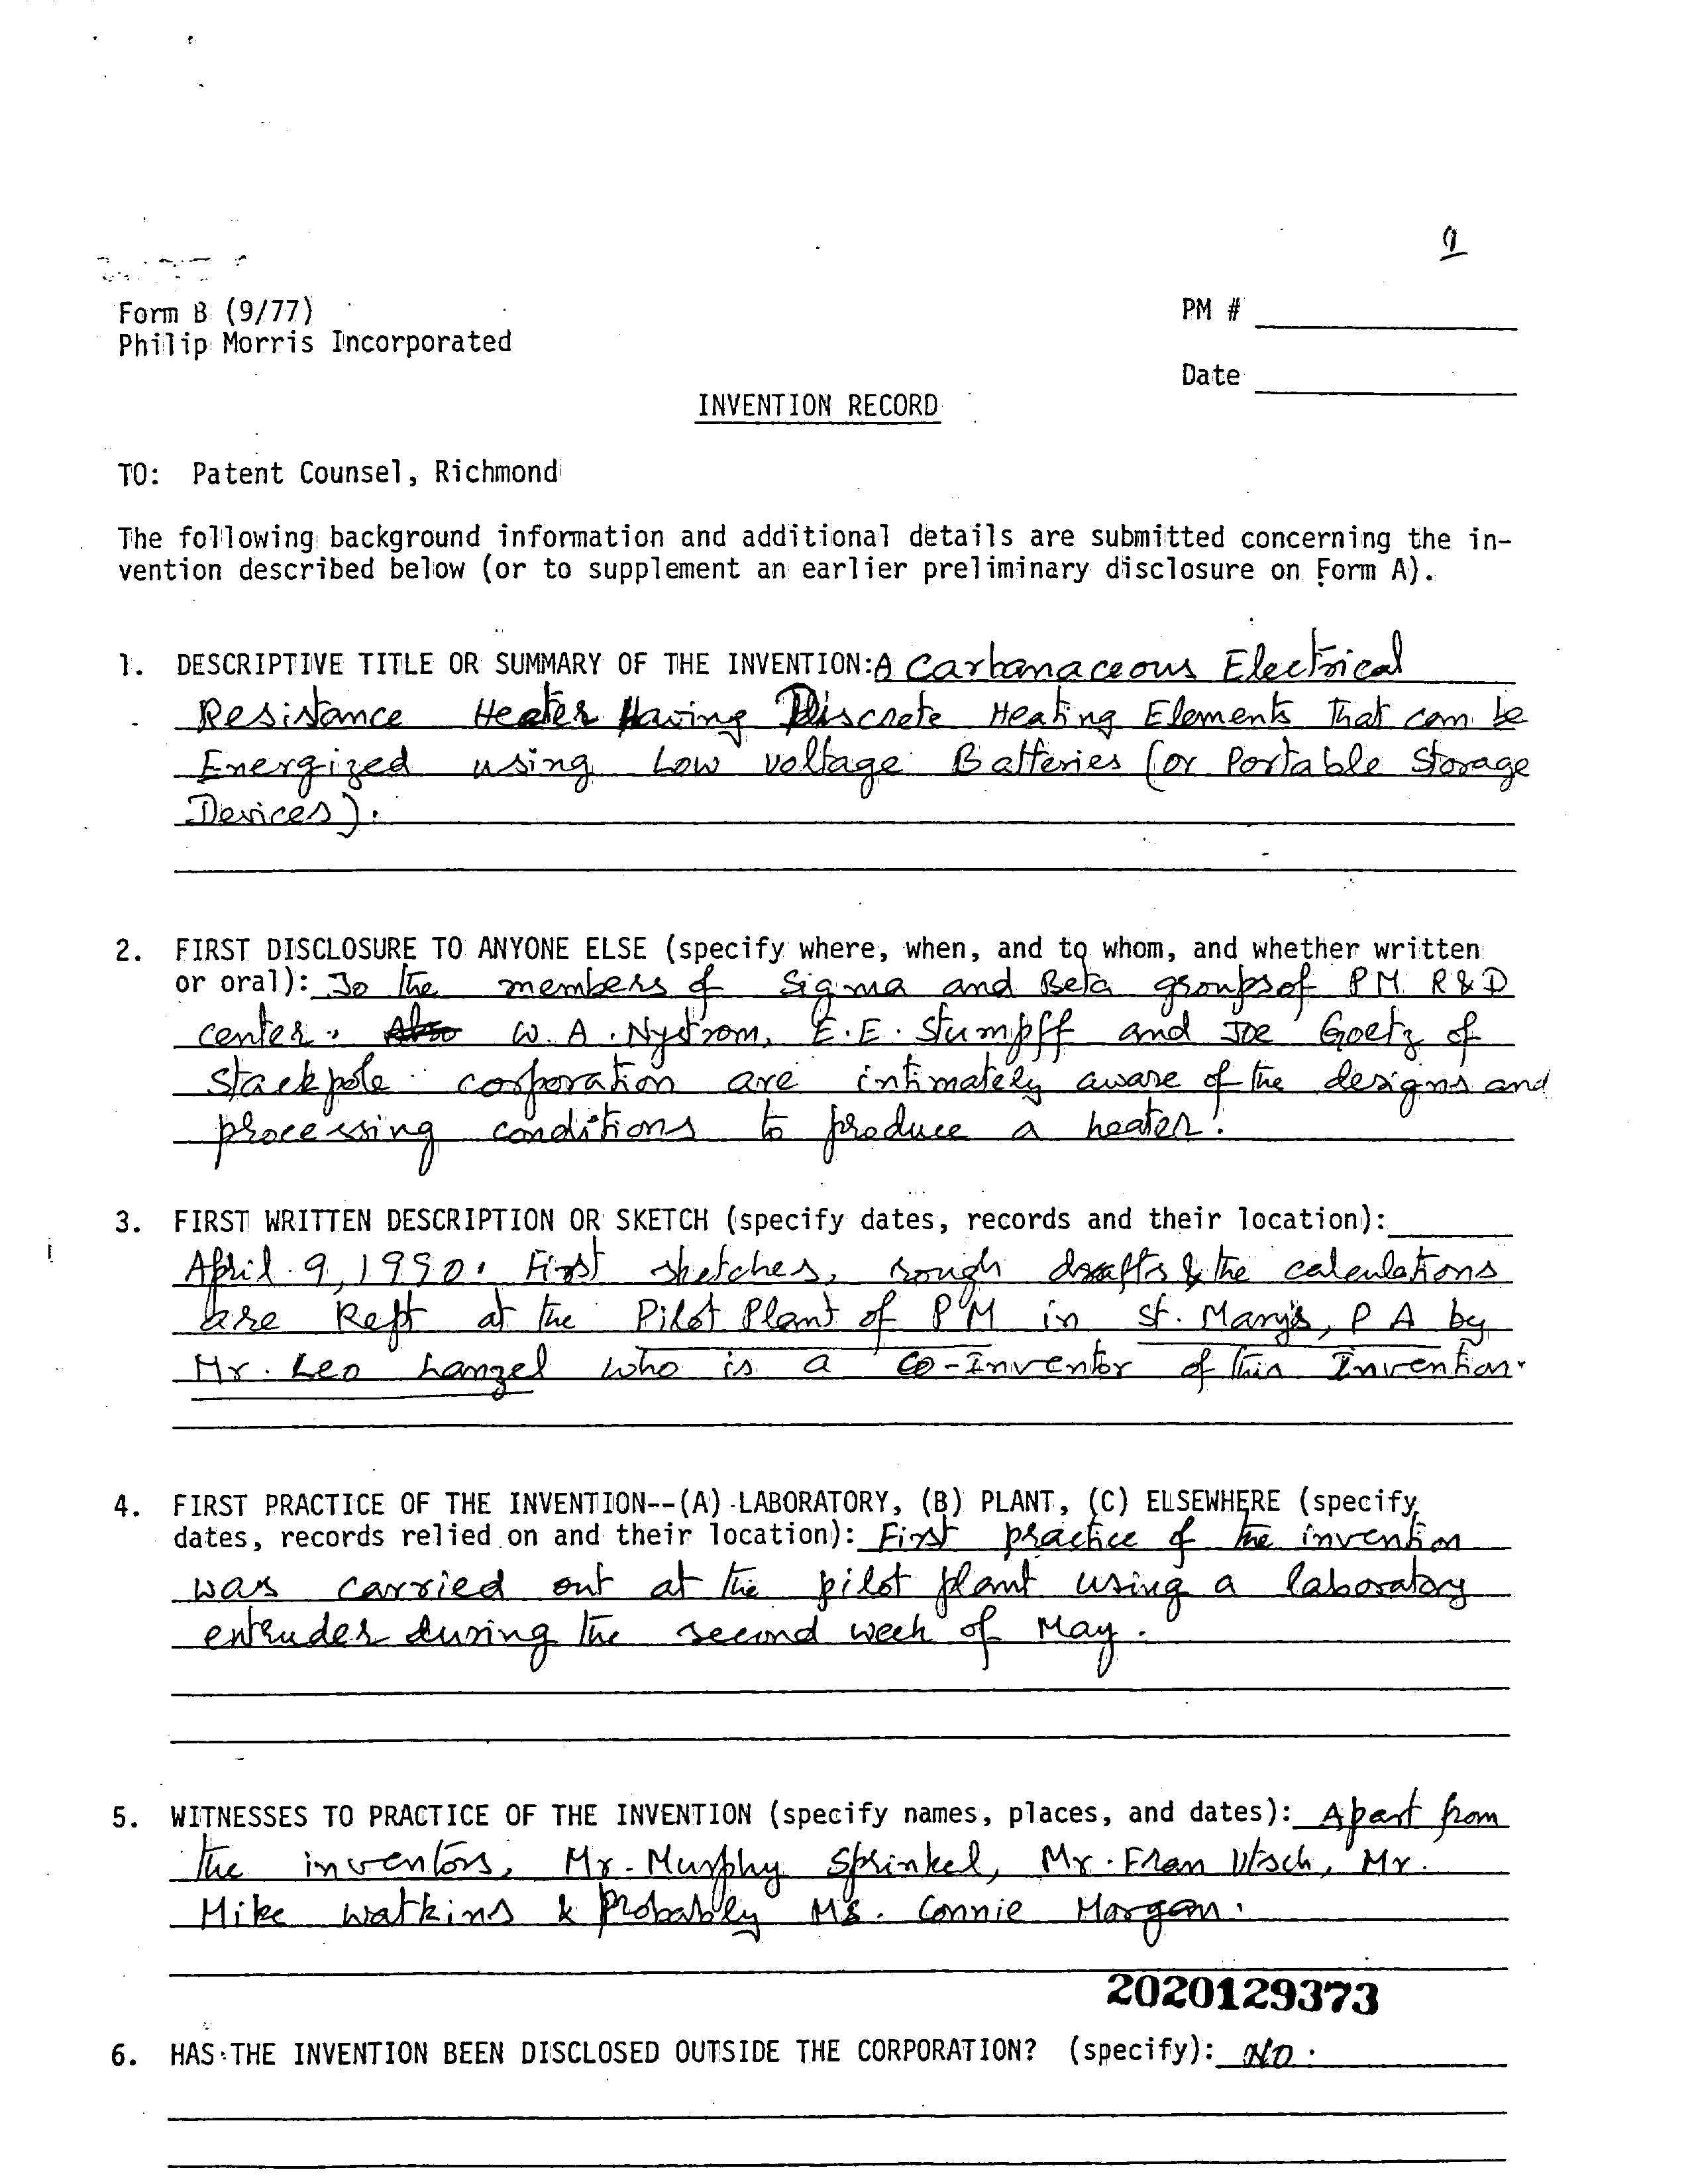 9
Form B (9/77)
PM #
Philip Morris Incorporated
Date
INVENTION RECORD
TO: Patent Counsel, Richmond
The following background information and additional details are submitted concerning the in-
vention described below (or to supplement an earlier preliminary disclosure on Form A).
1. DESCRIPTIVE TITLE OR SUMMARY OF THE INVENTION: A Carbanaceous Electrical
Resistance Heater Having Discrete Heating Elements That can be
Energized using Low voltage Batteries (or Portable Storage
Devices).
2. FIRST DISCLOSURE TO ANYONE ELSE (specify where, when, and to whom, and whether written
or oral): To the members of Sigma and Beta groups of PM R&D
center. Also W. A. Nystrom, E. E. Stumpff and Joe Goetz of
Stackpole corporation are intimately aware of the designs and
processing conditions to produce a heater.
3. FIRST WRITTEN DESCRIPTION OR SKETCH (specify dates, records and their location):
April 9, 1990. First sketches, rough drafts & the calculations
are kept at the Pilot Plant of PM in St. Mary's, PA by
Mr. Leo Langel who is a Co-Inventor of this Invention.
4. FIRST PRACTICE OF THE INVENTION--(A) LABORATORY, (B) PLANT, (C) ELSEWHERE (specify
dates, records relied on and their location): First practice of the invention
was carried out at the pilot plant using a laboratory
extruder during the second week of May.
5. WITNESSES TO PRACTICE OF THE INVENTION (specify names, places, and dates): Apart from
the inventors, Mr. Murphy Sprinkel, Mr. Fran Utsch, Mr.
Mike Watkins & Probably Ms. Connie Morgan.
2020129373
6. HAS THE INVENTION BEEN DISCLOSED OUTSIDE THE CORPORATION? (specify): NO.